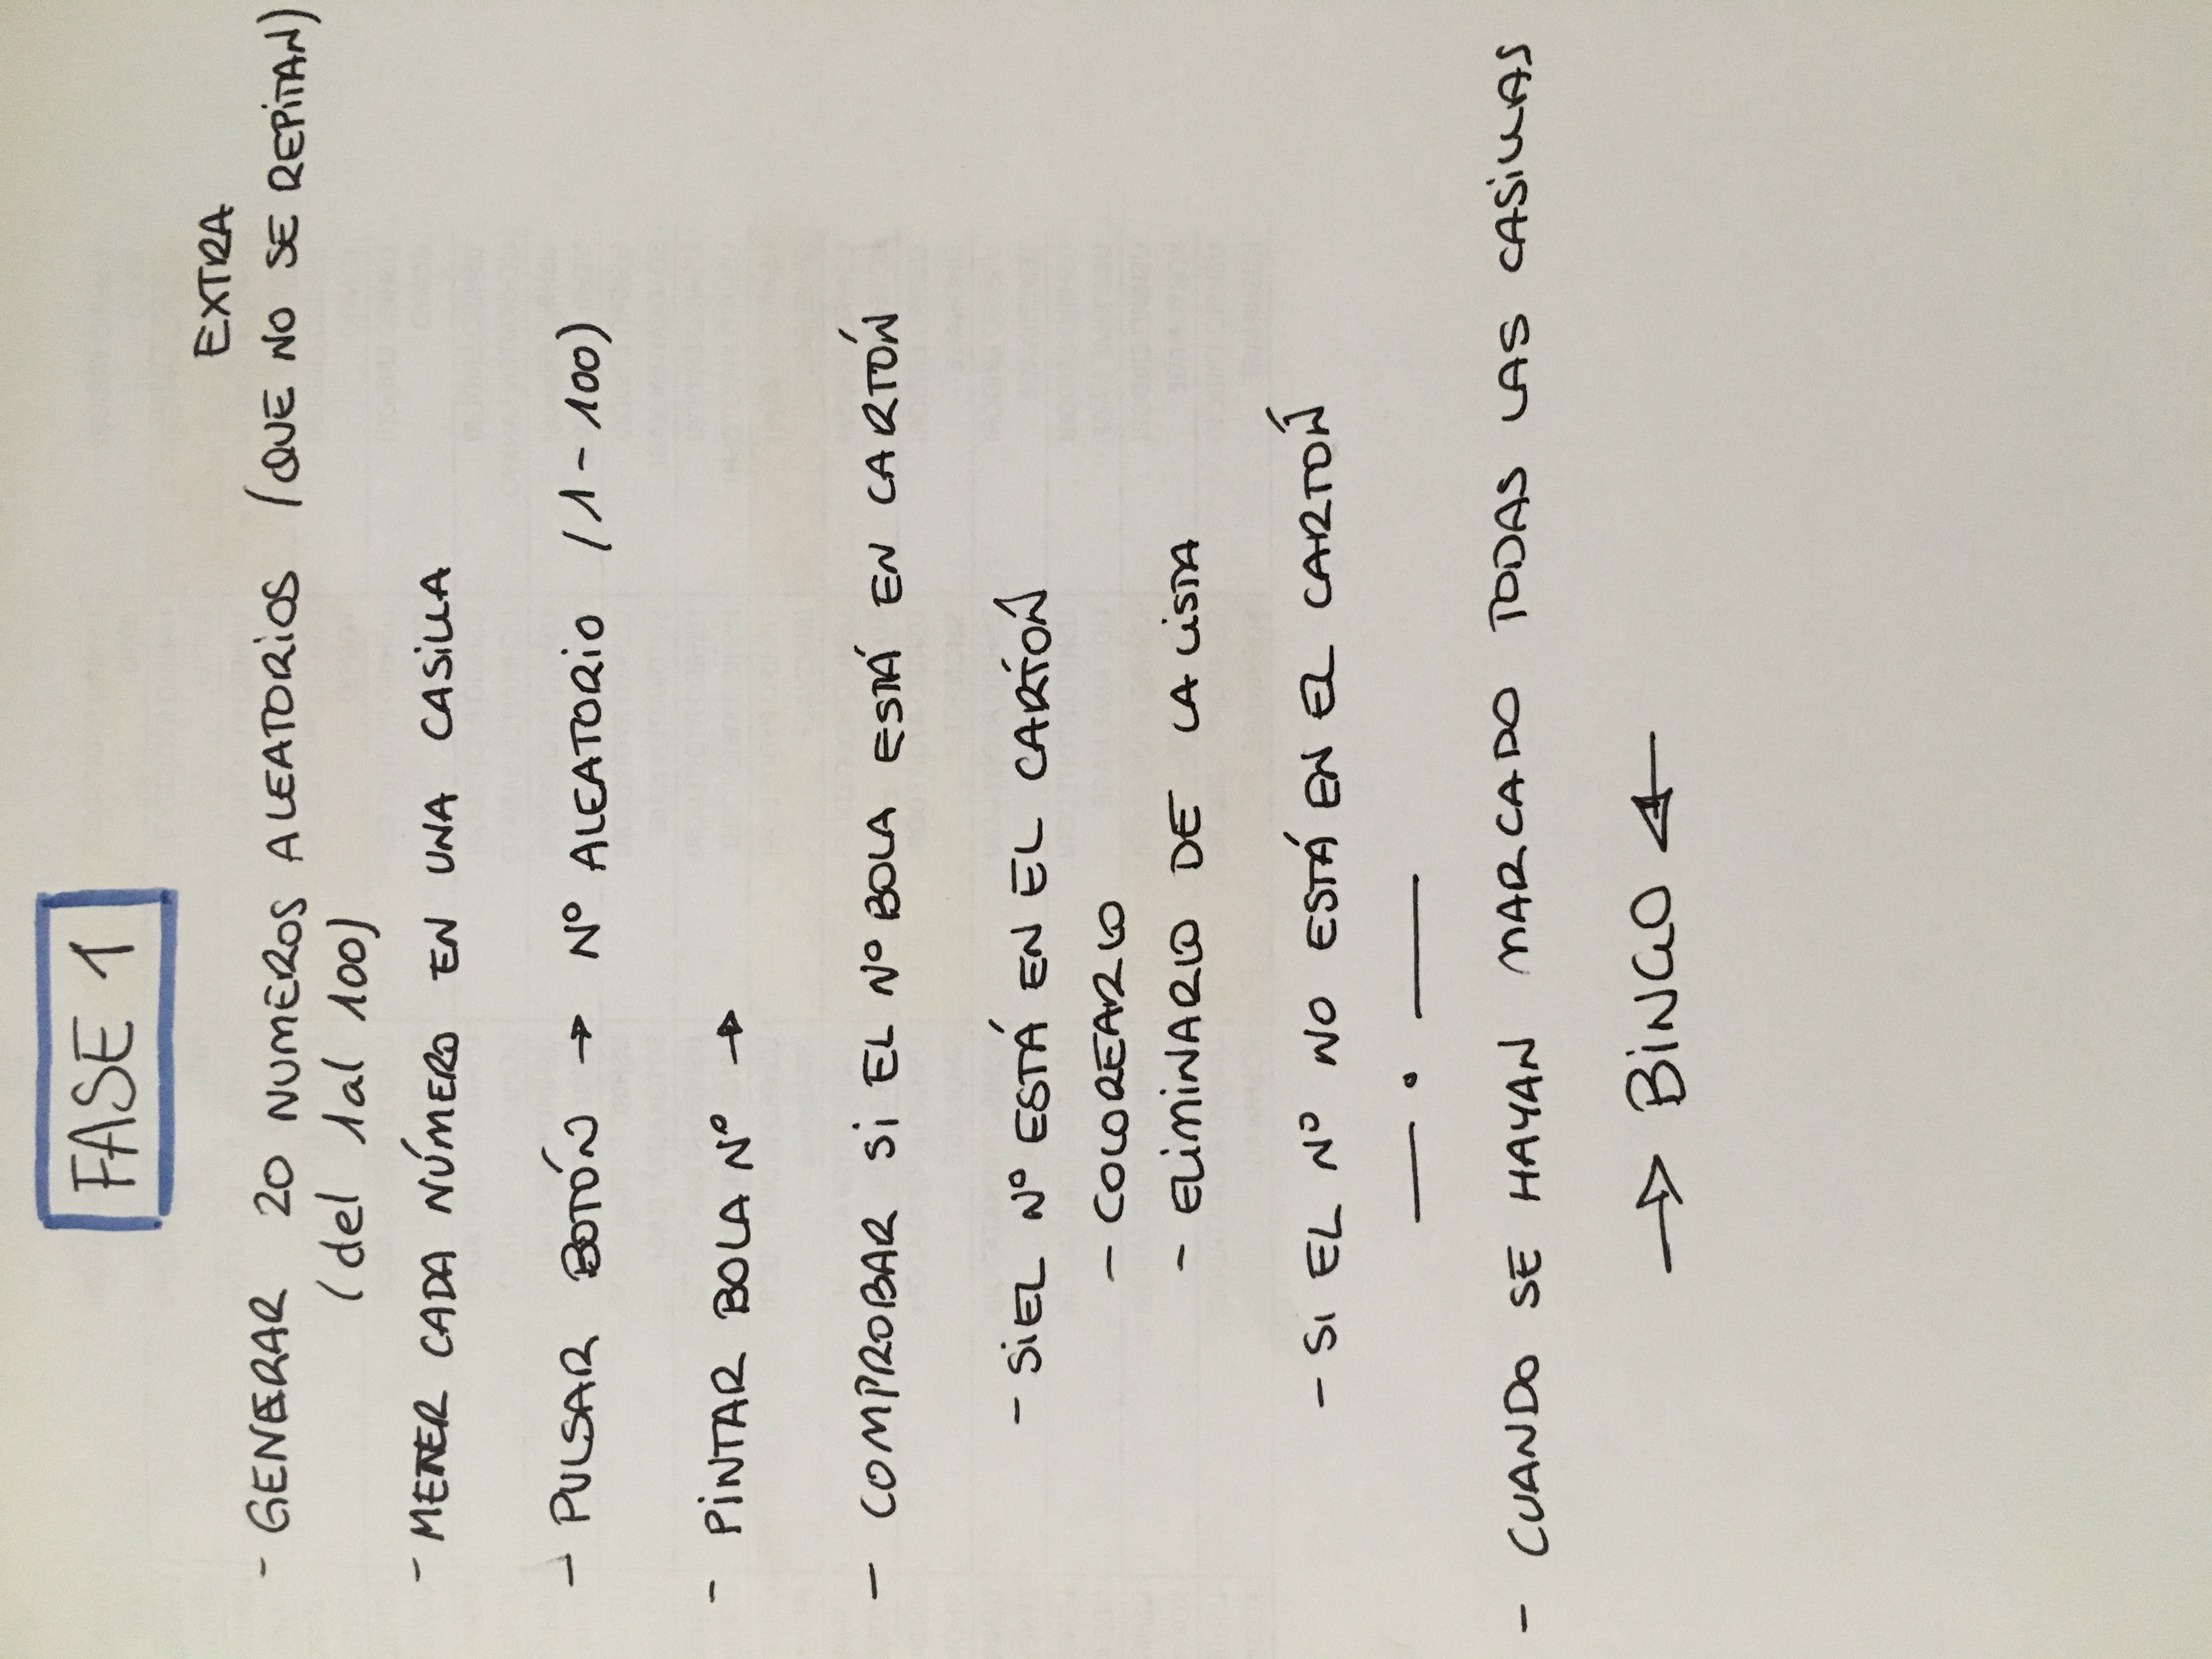 FASE 1
EXTRA
- GENERAR 20 NUMEROS ALEATORIOS (QUE NO SE REPITAN)
(del 1 al 100)
- METER CADA NÚMERO EN UNA CASILLA
- PULSAR BOTÓN → Nº ALEATORIO (1 - 100)
- PINTAR BOLA Nº →
- COMPROBAR SI EL Nº BOLA ESTÁ EN CARTÓN
- SI EL Nº ESTÁ EN EL CARTÓN
- COLOREARLO
- ELIMINARLO DE LA LISTA
- SI EL Nº NO ESTÁ EN EL CARTÓN
— • —
- CUANDO SE HAYAN MARCADO TODAS LAS CASILLAS
→ BINGO ←